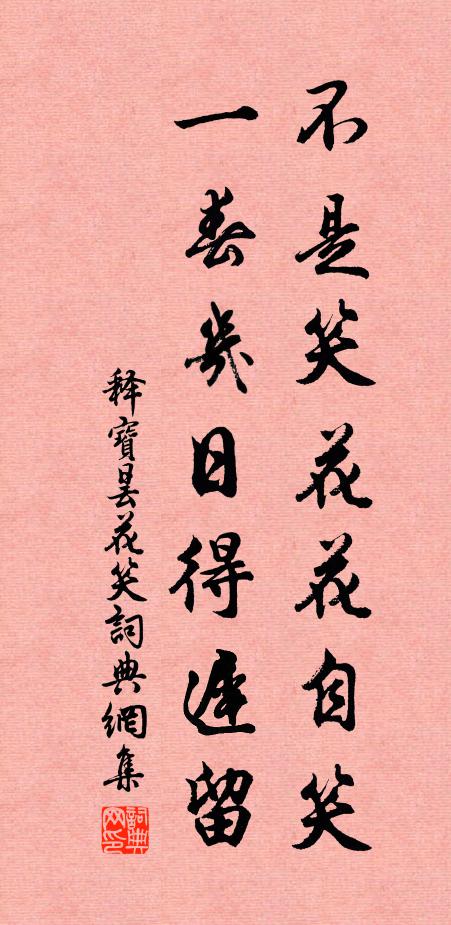 不是笑花花自笑
一春幾日得遲留
释寶曇花笑詞典網集
詞典网印